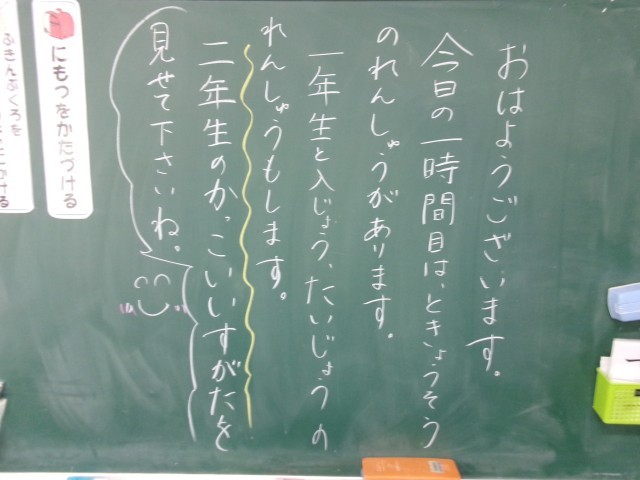 おはようございます。
今日の一時間目は、ときょうそう
のれんしゅうがあります。
一年生と入じょう、たいじょうの
れんしゅうもします。
二年生のかっこいいすがたを
見せて下さいね。
にもつをかたづける